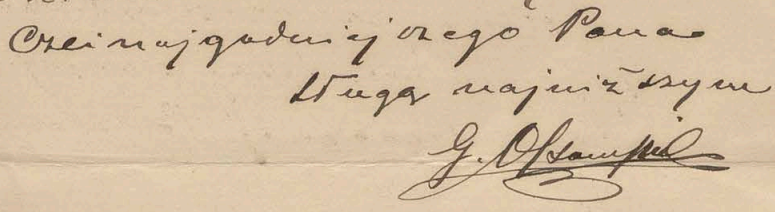 Czci najgodniejszego Pana
sługą najniższym
G.